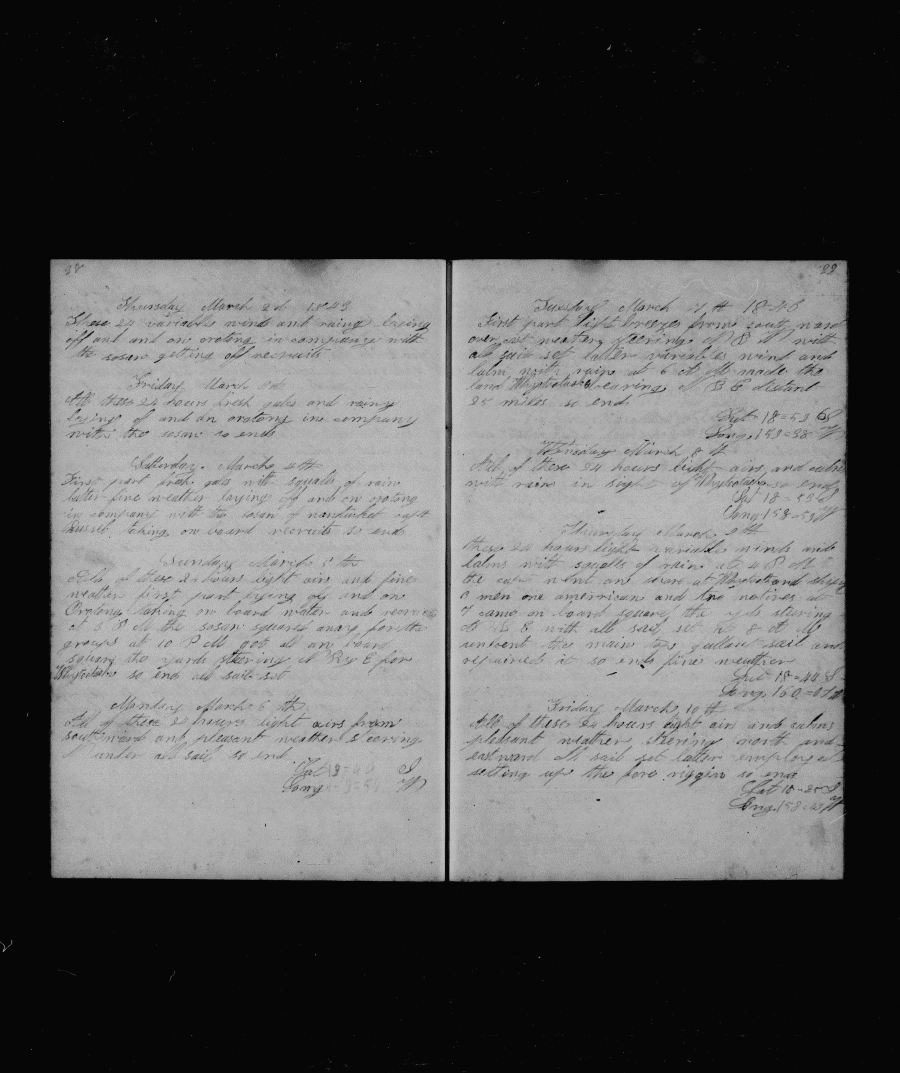 Thursday March 2d 1843
These 24 variables wind and rainy laying
off and and on orotong in company with
the sosan getting off recruits
Friday March 3d
All these 24 hours fresh gales and rainy
laying of and on orotong in company
with the sosan so ends
Saturday March 4th
First part fresh gales with squals of rain
latter fine weather laying off and on orotong
in company with the sosan of nantucket capt
Russel taking on board recruits so ends
Sunday March 5 th
All of these 24 hours light airs and fine
weather first part lying off and on
Orotong taking on board water and
at 3 P M the sosan squared away for the
groups at 10 P M got all on board
squar the yards steering N B y E for
so end all sail set
Monday March 6 th
All of these 24 hours light airs from
southward and pleasant weather steering
N under all sail so end
Lat 19 S
Long W
Tuesday March 7 th 1843
First part light breezes from south ward
overcast weather steering N B W with
all sail set latter variables wind and
calm with rain at 6 A M made the
land bearing N B E distant
25 miles so end
Lat 18=53 S
Long 159=38 W
Wensday March 8 th
All of these 24 hours light airs and calms
with rain in sight of so end
Lat 18=53 S
Long 158=53 W
Thursday March 9th
these 24 hours light variable winds and
calms with squals of rain at 4 P M
the capt went on shore at and
3 men one amerrican and two natives at
7 came on board squared the yds stering
N B E with all sail set at 8 A M
unbent the main top gallant sail and
repaired it so ends fine weather
Lat 18=44 S
Long W
Friday March 10 th
All of these 24 hours light airs and calms
pleasant weather stering north and
eastward all sail set latter employed
setting up the fore riggin so ends
Lat S
Long 158 W